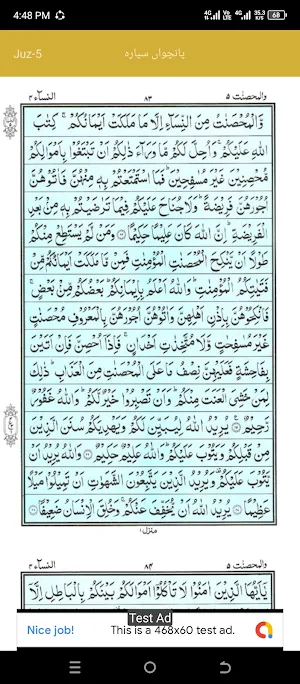 4:48 PM
4G Vo LTE 4G 35.3 K/S 68
Juz-5 پانچواں سپارہ
والمحصنت ۵ ۸۳ النساء ۴
وَّالْمُحْصَنٰتُ مِنَ النِّسَآءِ اِلَّا مَا مَلَكَتْ اَيْمَانُكُمْ ۚ كِتٰبَ
اللّٰهِ عَلَيْكُمْ ۚ وَاُحِلَّ لَكُمْ مَّا وَرَآءَ ذٰلِكُمْ اَنْ تَبْتَغُوْا بِاَمْوَالِكُمْ
مُّحْصِنِيْنَ غَيْرَ مُسٰفِحِيْنَ ؕ فَمَا اسْتَمْتَعْتُمْ بِهٖ مِنْهُنَّ فَاٰتُوْهُنَّ
اُجُوْرَهُنَّ فَرِيْضَةً ؕ وَلَا جُنَاحَ عَلَيْكُمْ فِيْمَا تَرٰضَيْتُمْ بِهٖ مِنْۢ بَعْدِ
الْفَرِيْضَةِ ؕ اِنَّ اللّٰهَ كَانَ عَلِيْمًا حَكِيْمًا ۝ وَمَنْ لَّمْ يَسْتَطِعْ مِنْكُمْ
طَوْلًا اَنْ يَّنْكِحَ الْمُحْصَنٰتِ الْمُؤْمِنٰتِ فَمِنْ مَّا مَلَكَتْ اَيْمَانُكُمْ مِّنْ
فَتَيٰتِكُمُ الْمُؤْمِنٰتِ ؕ وَاللّٰهُ اَعْلَمُ بِاِيْمَانِكُمْ ؕ بَعْضُكُمْ مِّنْۢ بَعْضٍ ۚ
فَانْكِحُوْهُنَّ بِاِذْنِ اَهْلِهِنَّ وَاٰتُوْهُنَّ اُجُوْرَهُنَّ بِالْمَعْرُوْفِ مُحْصَنٰتٍ
غَيْرَ مُسٰفِحٰتٍ وَّلَا مُتَّخِذٰتِ اَخْدَانٍ ۚ فَاِذَآ اُحْصِنَّ فَاِنْ اَتَيْنَ
بِفَاحِشَةٍ فَعَلَيْهِنَّ نِصْفُ مَا عَلَى الْمُحْصَنٰتِ مِنَ الْعَذَابِ ؕ ذٰلِكَ
لِمَنْ خَشِيَ الْعَنَتَ مِنْكُمْ ؕ وَاَنْ تَصْبِرُوْا خَيْرٌ لَّكُمْ ؕ وَاللّٰهُ غَفُوْرٌ
رَّحِيْمٌ ۝ يُرِيْدُ اللّٰهُ لِيُبَيِّنَ لَكُمْ وَيَهْدِيَكُمْ سُنَنَ الَّذِيْنَ
مِنْ قَبْلِكُمْ وَيَتُوْبَ عَلَيْكُمْ ؕ وَاللّٰهُ عَلِيْمٌ حَكِيْمٌ ۝ وَاللّٰهُ يُرِيْدُ اَنْ
يَّتُوْبَ عَلَيْكُمْ ۫ وَيُرِيْدُ الَّذِيْنَ يَتَّبِعُوْنَ الشَّهَوٰتِ اَنْ تَمِيْلُوْا مَيْلًا
عَظِيْمًا ۝ يُرِيْدُ اللّٰهُ اَنْ يُّخَفِّفَ عَنْكُمْ ۚ وَخُلِقَ الْاِنْسَانُ ضَعِيْفًا ۝
منزل ۱
والمحصنت ۵ ۸۴ النساء ۴
يٰٓاَيُّهَا الَّذِيْنَ اٰمَنُوْا لَا تَاْكُلُوْٓا اَمْوَالَكُمْ بَيْنَكُمْ بِالْبَاطِلِ اِلَّآ
Test Ad
Nice job! This is a 468x60 test ad.